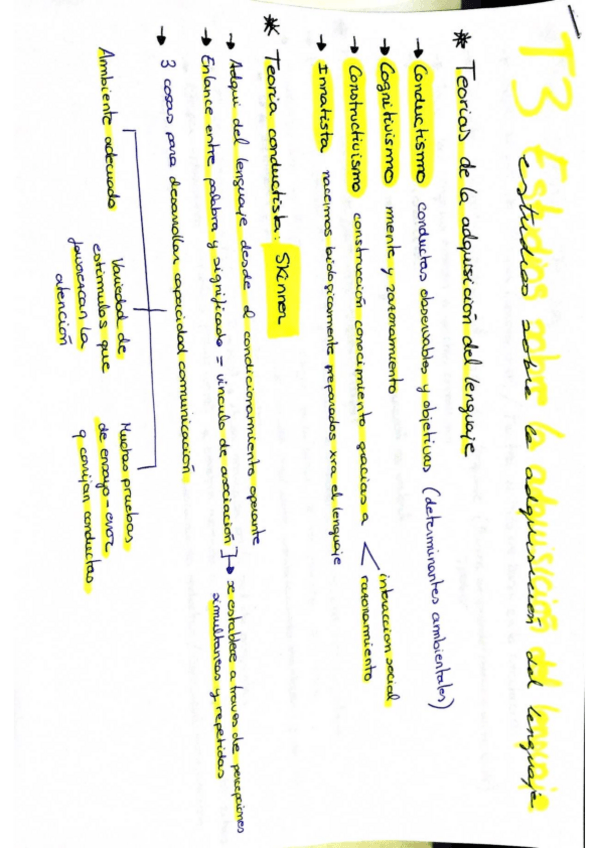 T3 Estudios sobre la adquisición del lenguaje
estudios sobre la adquisición del lenguaje
* Teorías de la adquisición del lenguaje
→ Conductismo conductas observables y objetivas (determinantes ambientales)
→ Cognitivismo mente y razonamiento
→ Constructivismo construcción conocimiento gracias a < interacción social
razonamiento
→ Innatista nacemos biológicamente preparados xra el lenguaje
* Teoría conductista: Skinner
→ Adqui del lenguaje desde el condicionamiento operante
→ Enlance entre palabra y significado = vínculo de asociación] → se establece a través de percepciones
simultaneas y repetidas
→ 3 cosas para desarrollar capacidad comunicación
Ambiente adecuado
Variedad de
estímulos que
favorezcan la
atención
Muchas pruebas
de ensayo-error
q corrijan conductas